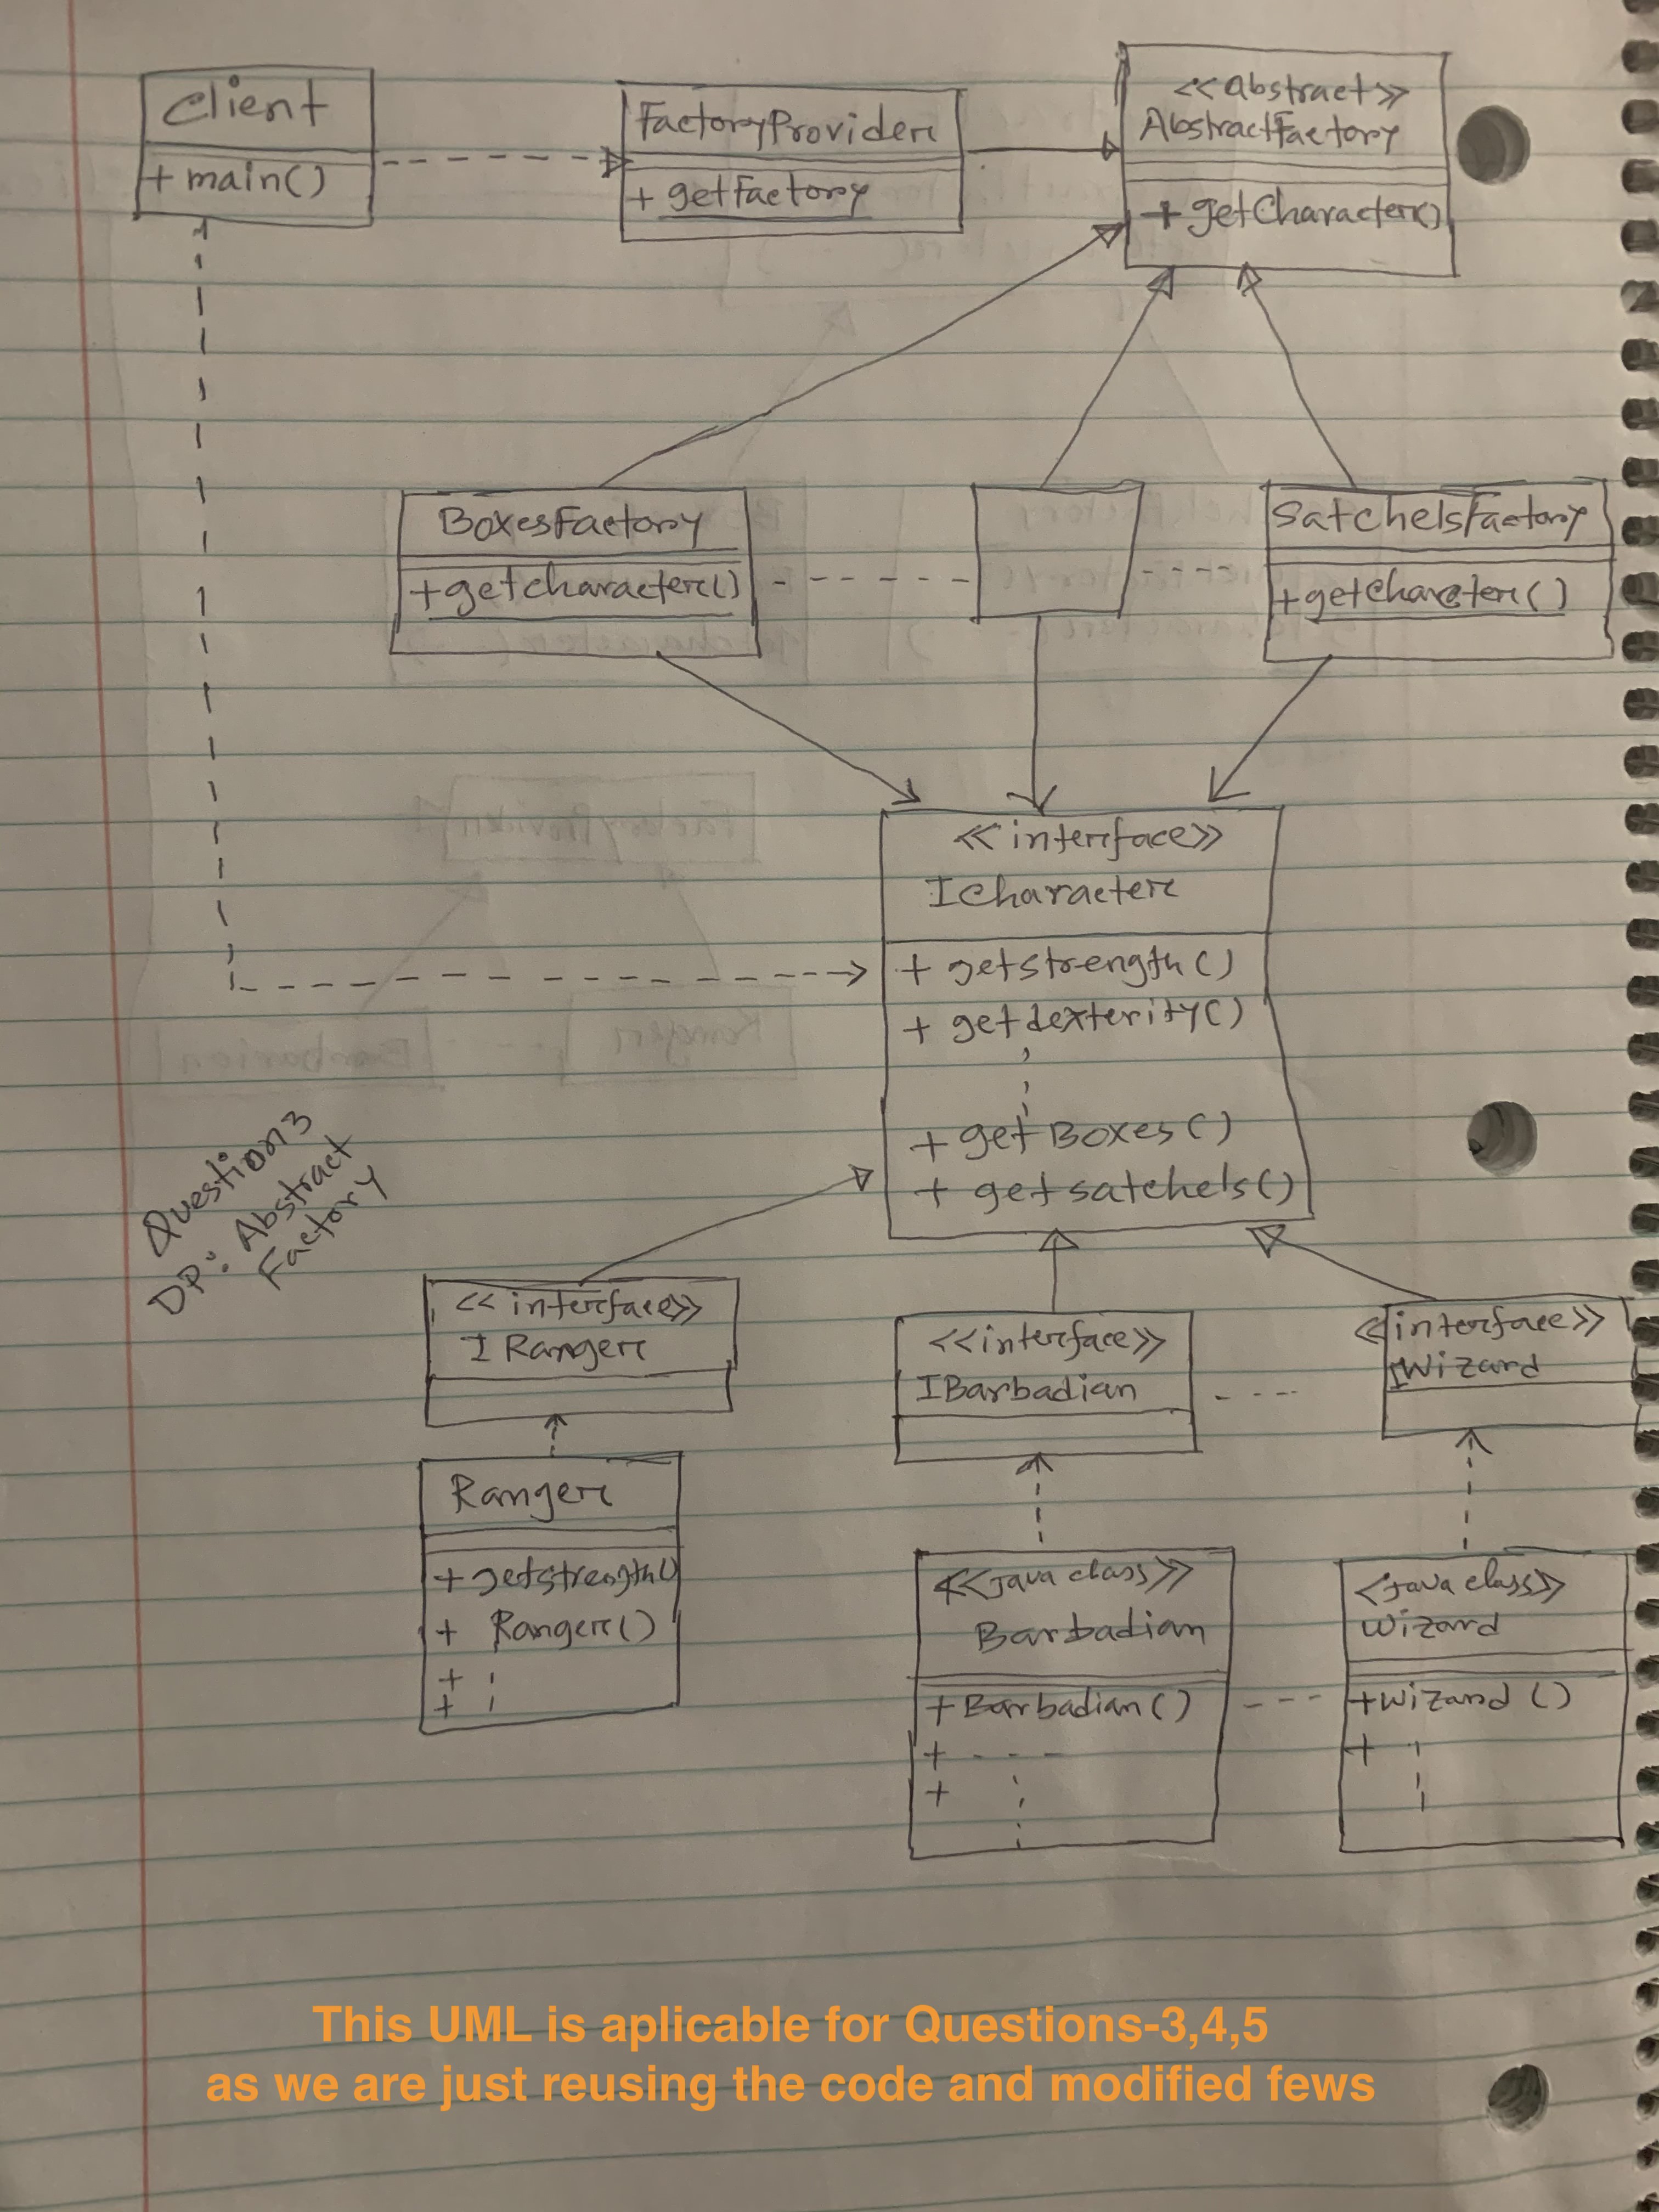 Client
+ main()
FactoryProvider
+ getFactory
<<Abstract>>
AbstractFactory
+ getCharacter()
BoxesFactory
+getcharacter()
SatchelsFactory
+getCharecter()
<<interface>>
ICharacter
+ getstrength()
+ getdexterity()
+ getBoxes()
+ getsatchels()
Question3
DP: Abstract
Factory
<<interface>>
IRanger
<<interface>>
IBarbadian
<<interface>>
IWizard
Ranger
+getstrength()
+ Ranger()
+
+
<<java class>>
Barbadian
+Barbadian()
+
+
<<java class>>
Wizard
+Wizard()
+
This UML is aplicable for Questions-3,4,5
as we are just reusing the code and modified fews